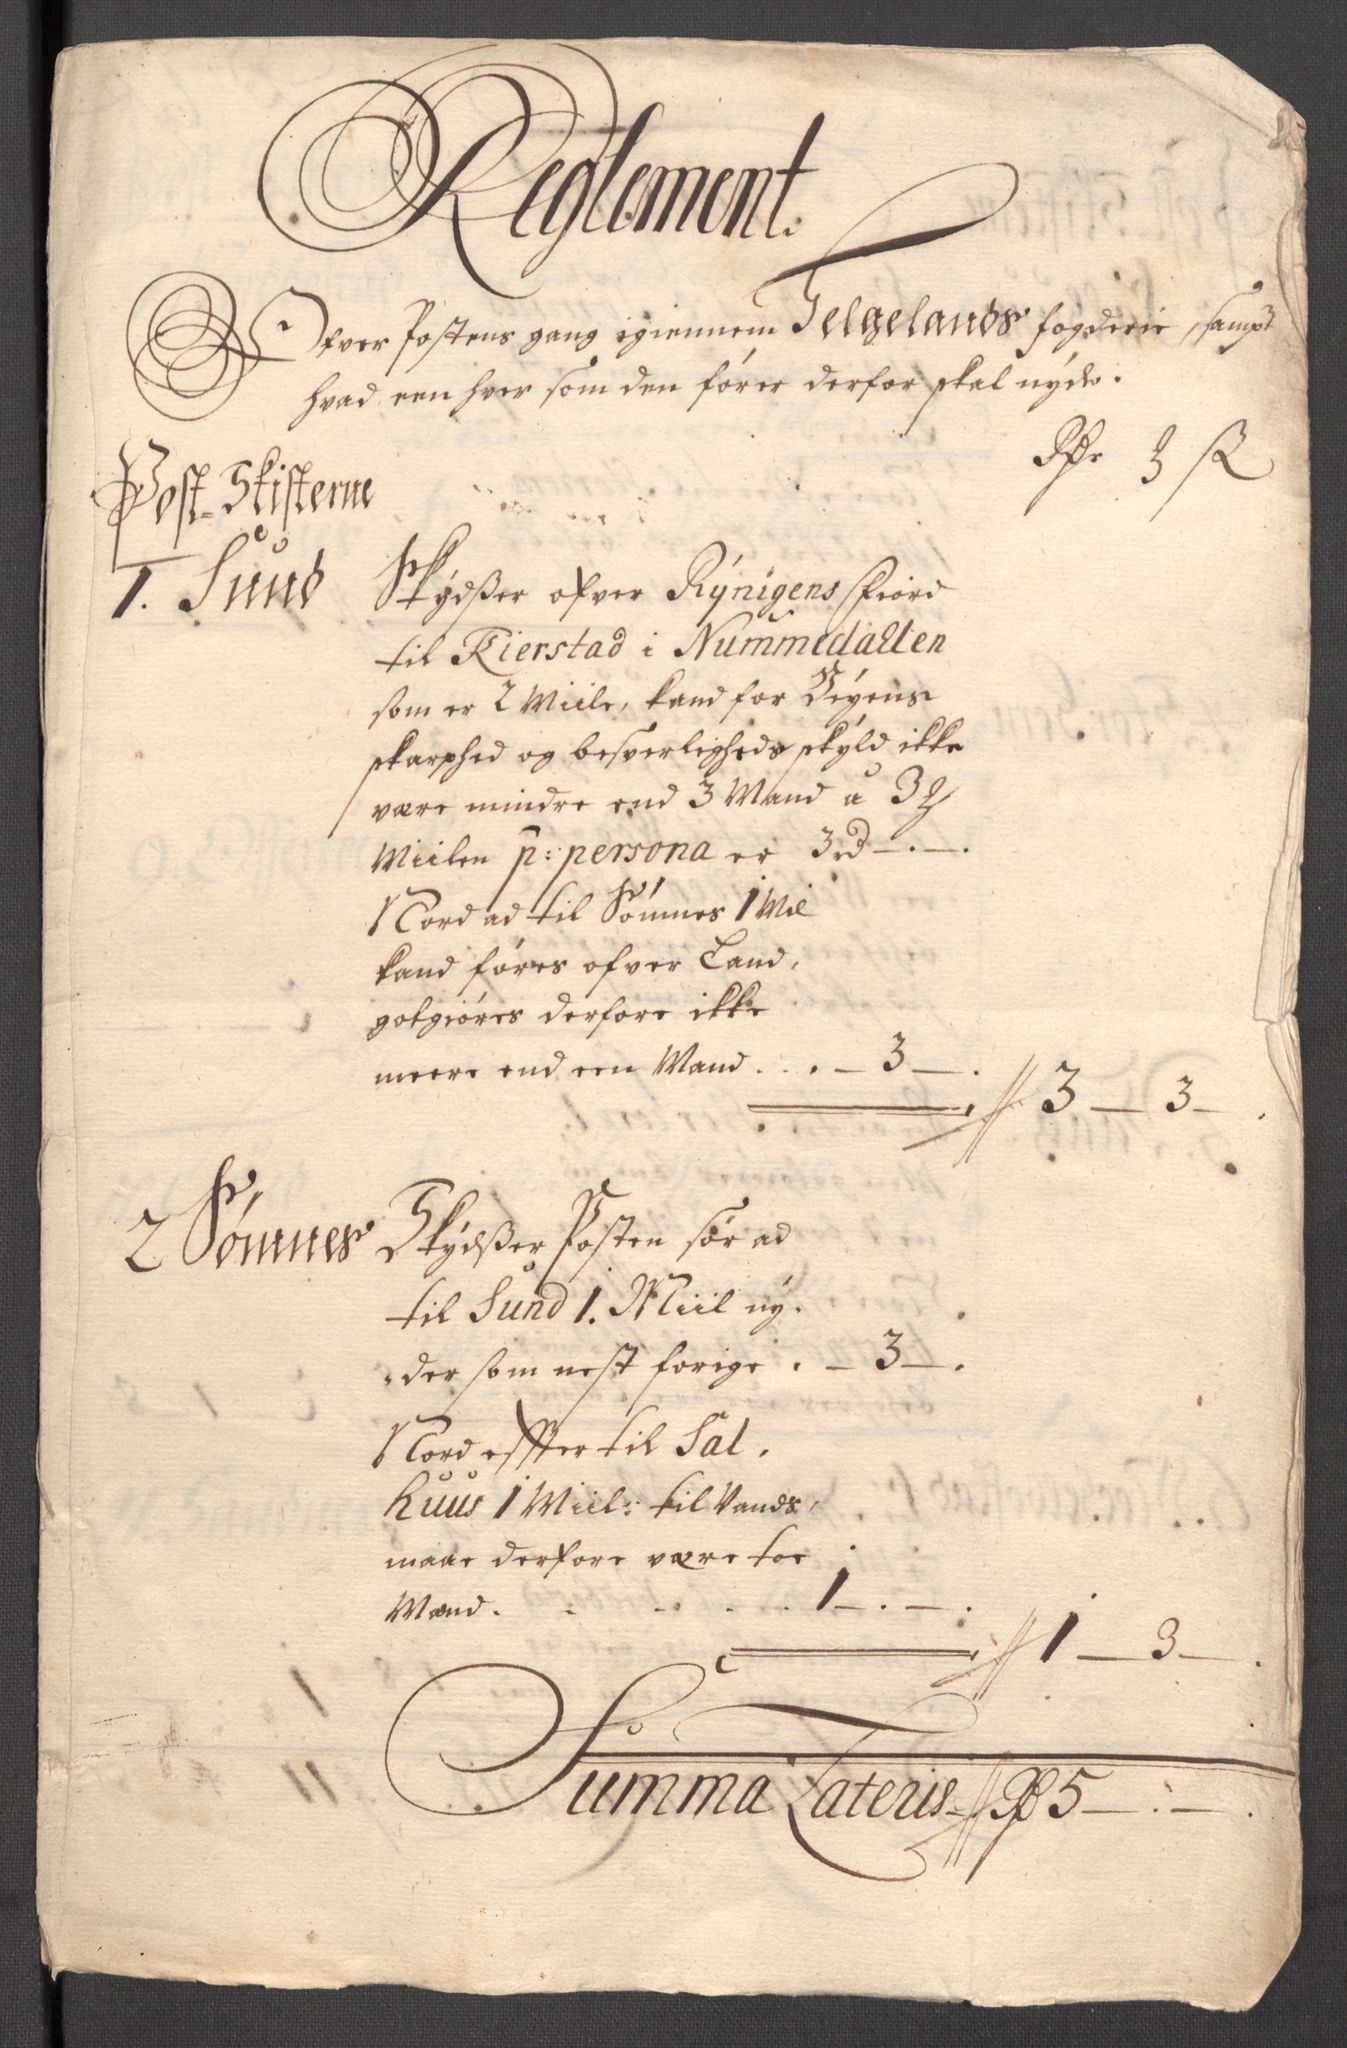 Reglement.
Ofver Postens gang igiennem Helgelands fogderie, sampt
hvad een hver som den fører derfor skal nyde.
Rdr ℥ ß
Post-Skifterne
1. Sund
Skydsser ofver Rynigens fiord
til Kierstad i Nummedallen
som er 2 Miile, kand for Veyens
skarphed og besverligheds skyld ikke
være mindre end 3 Mand a 3 ℥
Miilen p: persona er 3 rd —.—.
Nord ad til Sømnes 1 Mil
kand føres ofver Land,
gotgiøres derfore ikke
meere end een Mand . . . — 3 —.
3 — 3 — .
2 Sømnes
Skydsser Posten sør ad
til Sund 1. Miil ny-
der som nest forige . — 3 —.
Nord effter til Sal-
huus 1 Miil: til Vands,
maae derfore være toe
Mænd. . . . . . 1 —.—.
1 — 3 — .
Summa Lateris Rd 5 —.— .